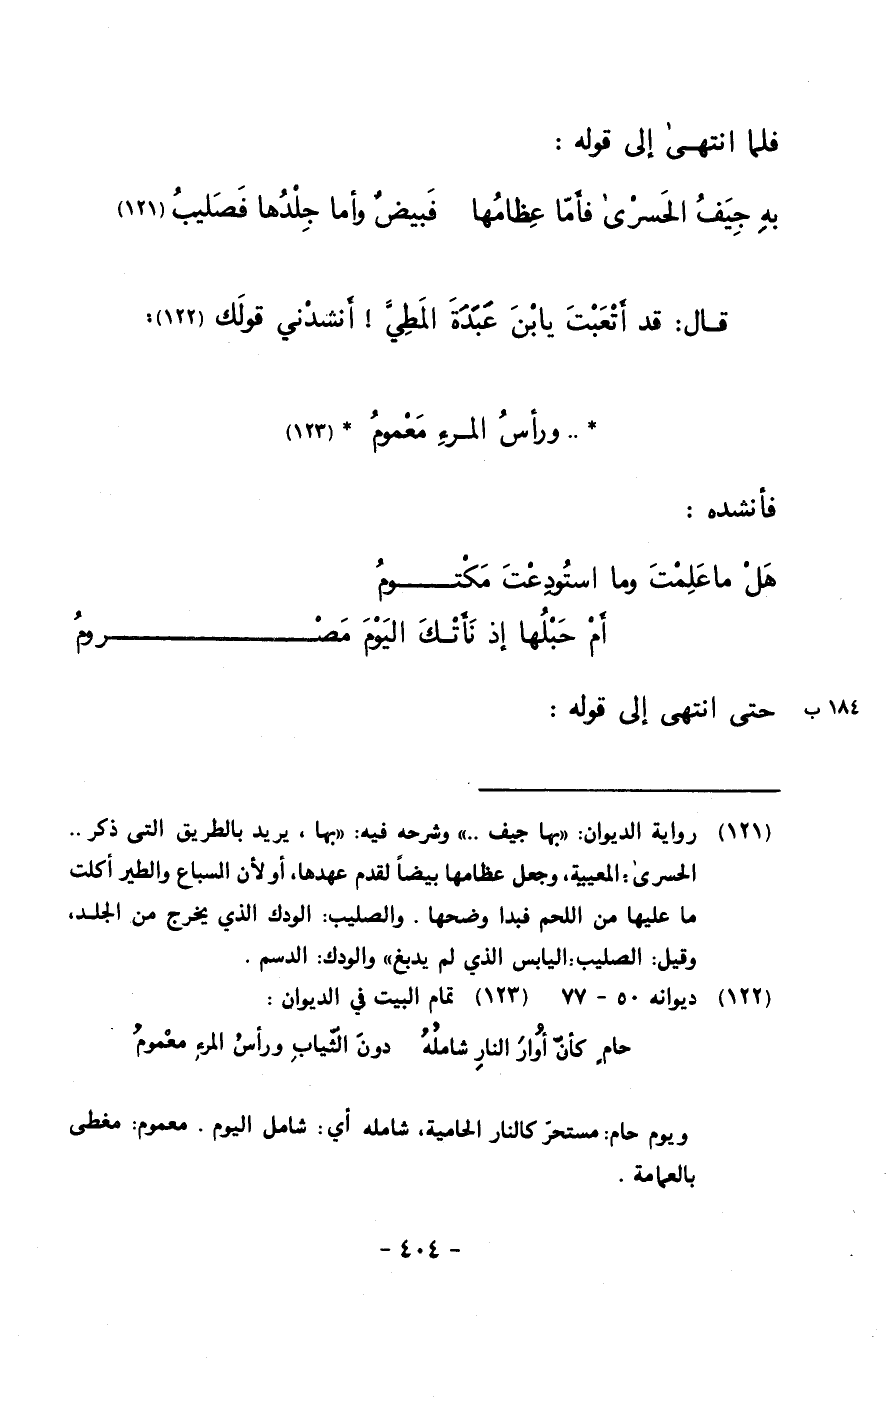 فلما انتهىٰ إلى قوله :
بهِ جِيَفُ الحَسرْىٰ فأَمّا عِظامُها    فَبيضٌ وأما جِلْدُها فَصَليبُ (١٢١)
قال: قد أَتْعَبْتَ يابْنَ عَبَدَةَ المَطِيَّ ! أَنشدْني قولَك (١٢٢):
* .. ورأسُ المرءِ مَعْمومُ * (١٢٣)
فأنشده :
هَلْ ماعَلِمْتَ وما استُودِعْتَ مَكْتـــــومُ
أَمْ حَبْلُها إذ نَأَتْكَ اليَوْمَ مَصْـــــــــرومُ
١٨٤ ب    حتى انتهى إلى قوله :
(١٢١) رواية الديوان: «بها جيف ..» وشرحه فيه: «بها ، يريد بالطريق التى ذكر ..
الحسرىٰ: المعيية، وجعل عظامها بيضاً لقدم عهدها، أو لأن السباع والطير أكلت
ما عليها من اللحم فبدا وضحها . والصليب: الودك الذي يخرج من الجلد،
وقيل: الصليب: اليابس الذي لم يدبغ» والودك: الدسم .
(١٢٢) ديوانه ٥٠ - ٧٧    (١٢٣) تمام البيت في الديوان :
حامٍ كأنّ أُوارُ النارِ شاملُهُ    دونَ الثّيابِ ورأسُ المرءِ معْمومُ
ويوم حام: مستحرّ كالنار الحامية، شامله أي: شامل اليوم . معموم: مغطى
بالعمامة .
- ٤٠٤ -